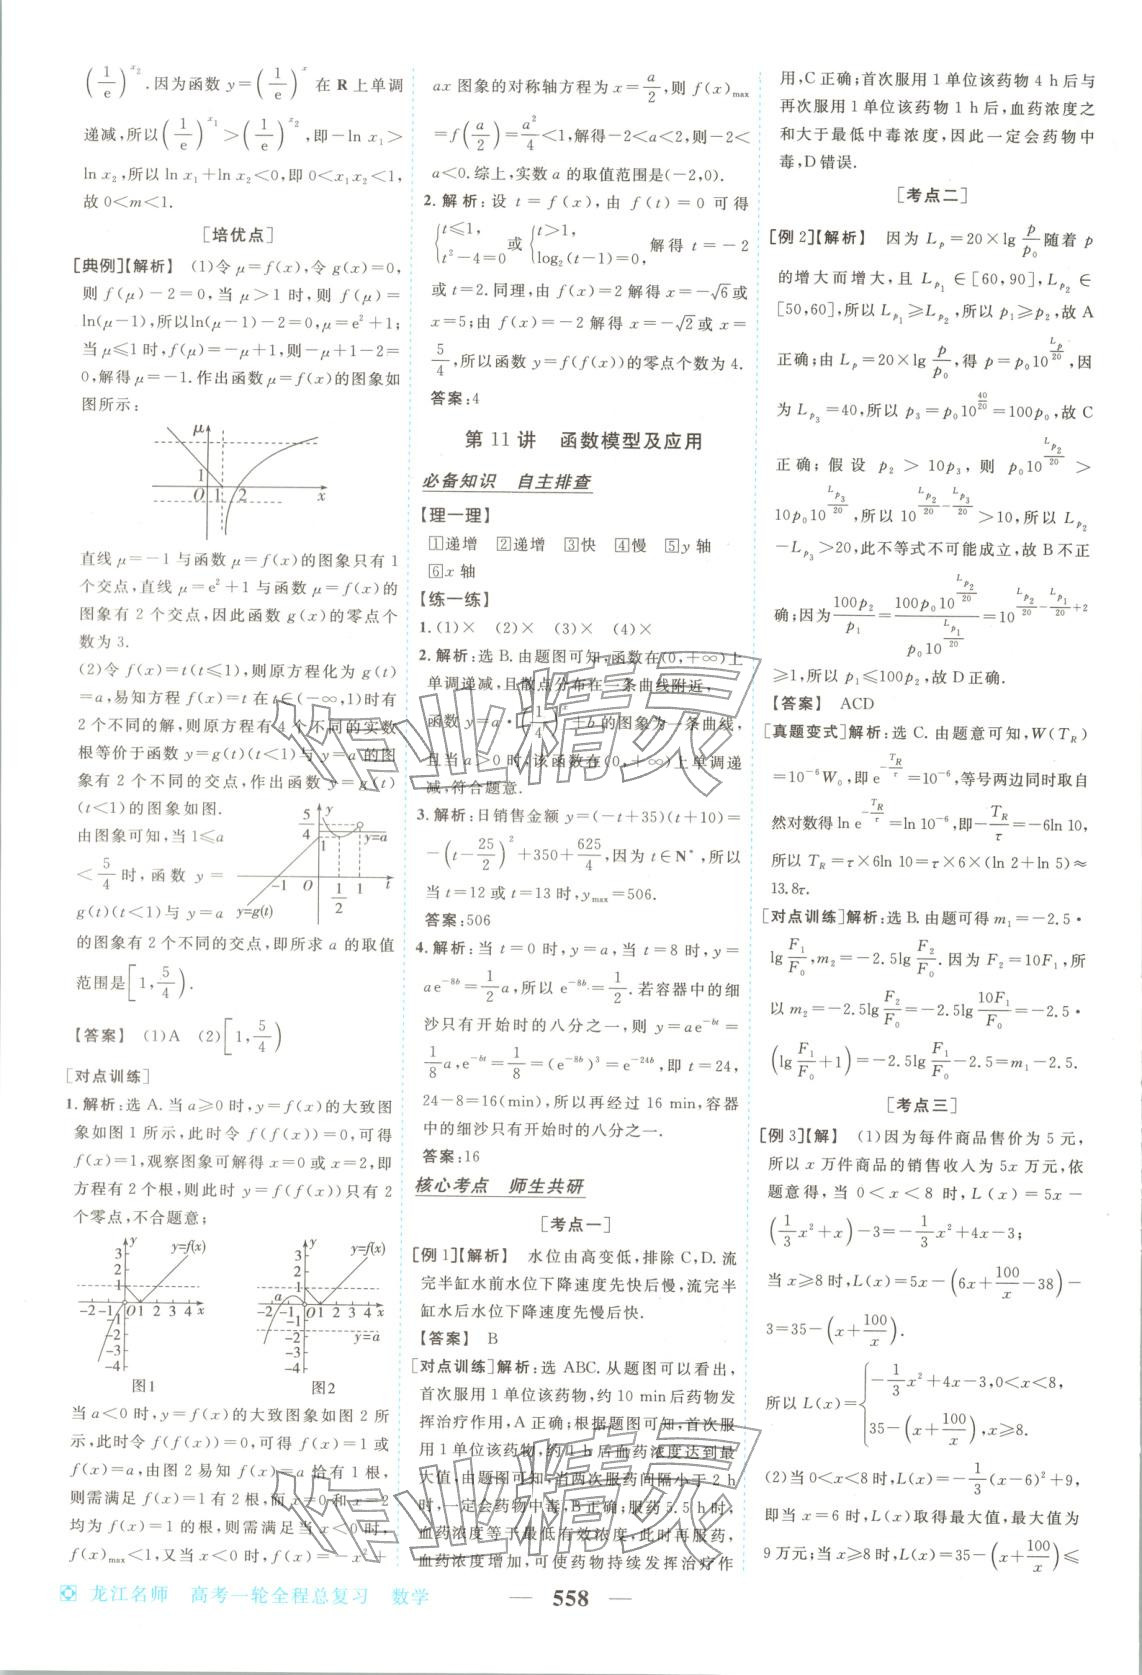 (1/e)^x₂.因为函数 y=(1/e)^x 在 R 上单调
递减,所以(1/e)^x₁>(1/e)^x₂,即-ln x₁>
ln x₂,所以 ln x₁+ln x₂<0,即 0<x₁x₂<1,
故 0<m<1.
[培优点]
[典例]【解析】 (1)令 μ=f(x),令 g(x)=0,
则 f(μ)-2=0,当 μ>1 时,则 f(μ)=
ln(μ-1),所以ln(μ-1)-2=0,μ=e²+1;
当 μ≤1 时,f(μ)=-μ+1,则-μ+1-2=
0,解得 μ=-1.作出函数 μ=f(x)的图象如
图所示:
μ
1
O 1 2 x
直线 μ=-1 与函数 μ=f(x)的图象只有 1
个交点,直线 μ=e²+1 与函数 μ=f(x)的
图象有 2 个交点,因此函数 g(x)的零点个
数为 3.
(2)令 f(x)=t(t≤1),则原方程化为 g(t)
=a,易知方程 f(x)=t 在 t∈(-∞,1)时有
2 个不同的解,则原方程有 4 个不同的实数
根等价于函数 y=g(t)(t<1)与 y=a 的图
象有 2 个不同的交点,作出函数 y=g(t)
(t<1)的图象如图.
由图象可知,当 1≤a
<5/4时,函数 y=
g(t)(t<1)与 y=a
y
5/4
1
y=a
-1 O 1/2 1 t
y=g(t)
的图象有 2 个不同的交点,即所求 a 的取值
范围是[1,5/4).
【答案】 (1)A (2)[1,5/4)
[对点训练]
1.解析:选 A.当 a≥0 时,y=f(x)的大致图
象如图 1 所示,此时令 f(f(x))=0,可得
f(x)=1,观察图象可解得 x=0 或 x=2,即
方程有 2 个根,则此时 y=f(f(x))只有 2
个零点,不合题意;
y y=f(x)
3
2
1
-2 -1 O 1 2 3 4 x
-2
-3
-4
图1
y y=f(x)
3
2
a 1
-2 -1 O 1 2 3 4 x
-1
-2 y=a
-3
-4
图2
当 a<0 时,y=f(x)的大致图象如图 2 所
示,此时令 f(f(x))=0,可得 f(x)=1 或
f(x)=a,由图 2 易知 f(x)=a 恰有 1 根,
则需满足 f(x)=1 有 2 根,而 x=0 和 x=2
均为 f(x)=1 的根,则需满足当 x<0 时,
f(x)max<1,又当 x<0 时,f(x)=-x²+
ax 图象的对称轴方程为 x=a/2,则 f(x)max
=f(a/2)=a²/4<1,解得-2<a<2,则-2<
a<0.综上,实数 a 的取值范围是(-2,0).
2.解析:设 t=f(x),由 f(t)=0 可得
{t≤1, t²-4=0 或 {t>1, log₂(t-1)=0, 解得 t=-2
或 t=2.同理,由 f(x)=2 解得 x=-√6或
x=5;由 f(x)=-2 解得 x=-√2或 x=
5/4,所以函数 y=f(f(x))的零点个数为 4.
答案:4
第 11 讲 函数模型及应用
必备知识 自主排查
【理一理】
1递增 2递增 3快 4慢 5y 轴
6x 轴
【练一练】
1.(1)× (2)× (3)× (4)×
2.解析:选 B.由题图可知,函数在(0,+∞)上
单调递减,且散点分布在一条曲线附近,
函数 y=a·(1/4)^x+b的图象为一条曲线,
且当 a>0 时,该函数在(0,+∞)上单调递
减,符合题意.
3.解析:日销售金额 y=(-t+35)(t+10)=
-(t-25/2)²+350+625/4,因为 t∈N*,所以
当 t=12 或 t=13 时,ymax=506.
答案:506
4.解析:当 t=0 时,y=a,当 t=8 时,y=
ae^-8b=1/2a,所以 e^-8b=1/2.若容器中的细
沙只有开始时的八分之一,则 y=ae^-bt=
1/8a,e^-bt=1/8=(e^-8b)³=e^-24b,即 t=24,
24-8=16(min),所以再经过 16 min,容器
中的细沙只有开始时的八分之一.
答案:16
核心考点 师生共研
[考点一]
[例 1]【解析】 水位由高变低,排除 C,D.流
完半缸水前水位下降速度先快后慢,流完半
缸水后水位下降速度先慢后快.
【答案】 B
[对点训练]解析:选 ABC.从题图可以看出,
首次服用 1 单位该药物,约 10 min后药物发
挥治疗作用,A 正确;根据题图可知,首次服
用 1 单位该药物,约 1 h 后血药浓度达到最
大值,由题图可知,当两次服药间隔小于 2 h
时,一定会药物中毒,B正确;服药 5.5 h时,
血药浓度等于最低有效浓度,此时再服药,
血药浓度增加,可使药物持续发挥治疗作
用,C 正确;首次服用 1 单位该药物 4 h 后与
再次服用 1 单位该药物 1 h 后,血药浓度之
和大于最低中毒浓度,因此一定会药物中
毒,D 错误.
[考点二]
[例 2]【解析】 因为 Lp=20×lg p/p₀随着 p
的增大而增大,且 Lp₁∈[60,90],Lp₂∈
[50,60],所以 Lp₁≥Lp₂,所以 p₁≥p₂,故 A
正确;由 Lp=20×lg p/p₀,得 p=p₀10^(Lp/20),因
为 Lp₃=40,所以 p₃=p₀10^(40/20)=100p₀,故 C
正确;假设 p₂>10p₃,则 p₀10^(Lp₂/20)>
10p₀10^(Lp₃/20),所以 10^(Lp₂/20-Lp₃/20)>10,所以 Lp₂
-Lp₃>20,此不等式不可能成立,故 B 不正
确;因为100p₂/p₁=100p₀10^(Lp₂/20)/p₀10^(Lp₁/20)=10^(Lp₂/20-Lp₁/20+2)
≥1,所以 p₁≤100p₂,故 D 正确.
【答案】 ACD
[真题变式]解析:选 C.由题意可知,W(T_R)
=10⁻⁶W₀,即 e^(-T_R/τ)=10⁻⁶,等号两边同时取自
然对数得 ln e^(-T_R/τ)=ln 10⁻⁶,即-T_R/τ=-6ln 10,
所以 T_R=τ×6ln 10=τ×6×(ln 2+ln 5)≈
13.8τ.
[对点训练]解析:选 B.由题可得 m₁=-2.5·
lg F₁/F₀,m₂=-2.5lg F₂/F₀.因为 F₂=10F₁,所
以 m₂=-2.5lg F₂/F₀=-2.5lg 10F₁/F₀=-2.5·
(lg F₁/F₀+1)=-2.5lg F₁/F₀-2.5=m₁-2.5.
[考点三]
[例 3]【解】 (1)因为每件商品售价为 5 元,
所以 x 万件商品的销售收入为 5x 万元,依
题意得,当 0<x<8 时,L(x)=5x-
(1/3x²+x)-3=-1/3x²+4x-3;
当 x≥8时,L(x)=5x-(6x+100/x-38)-
3=35-(x+100/x).
所以 L(x)={-1/3x²+4x-3,0<x<8, 35-(x+100/x),x≥8.
(2)当 0<x<8 时,L(x)=-1/3(x-6)²+9,
即当 x=6 时,L(x)取得最大值,最大值为
9 万元;当 x≥8 时,L(x)=35-(x+100/x)≤
作业精灵
作业精灵
龙江名师 高考一轮全程总复习 数学
— 558 —